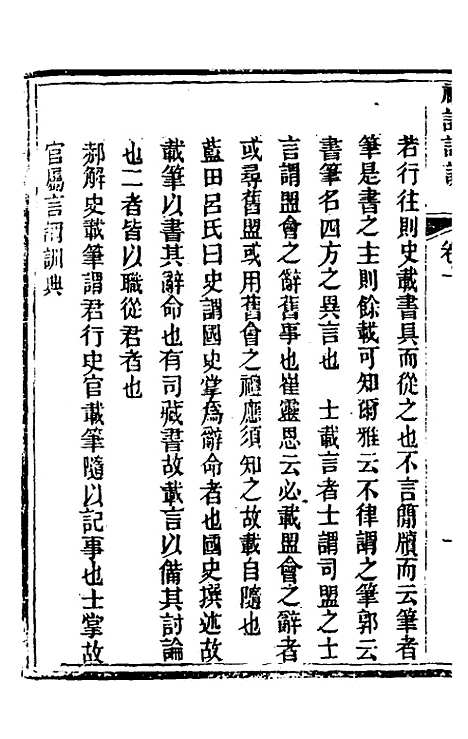 禮記訓義
卷一
若行往則史載書具而從之也不言簡牘而云筆者
筆是書之主則餘載可知爾雅云不律謂之筆郭云
書筆名四方之異言也　士載言者士謂司盟之士
言謂盟會之辭舊事也崔靈恩云必載盟會之辭者
或尋舊盟或用舊會之禮應須知之故載自隨也
藍田呂氏曰史謂國史掌為辭命者也國史撰述故
載筆以書其辭命也有司藏書故載言以備其討論
也二者皆以職從君者也
郝解史載筆謂君行史官載筆隨以記事也士掌故
官屬言謂訓典